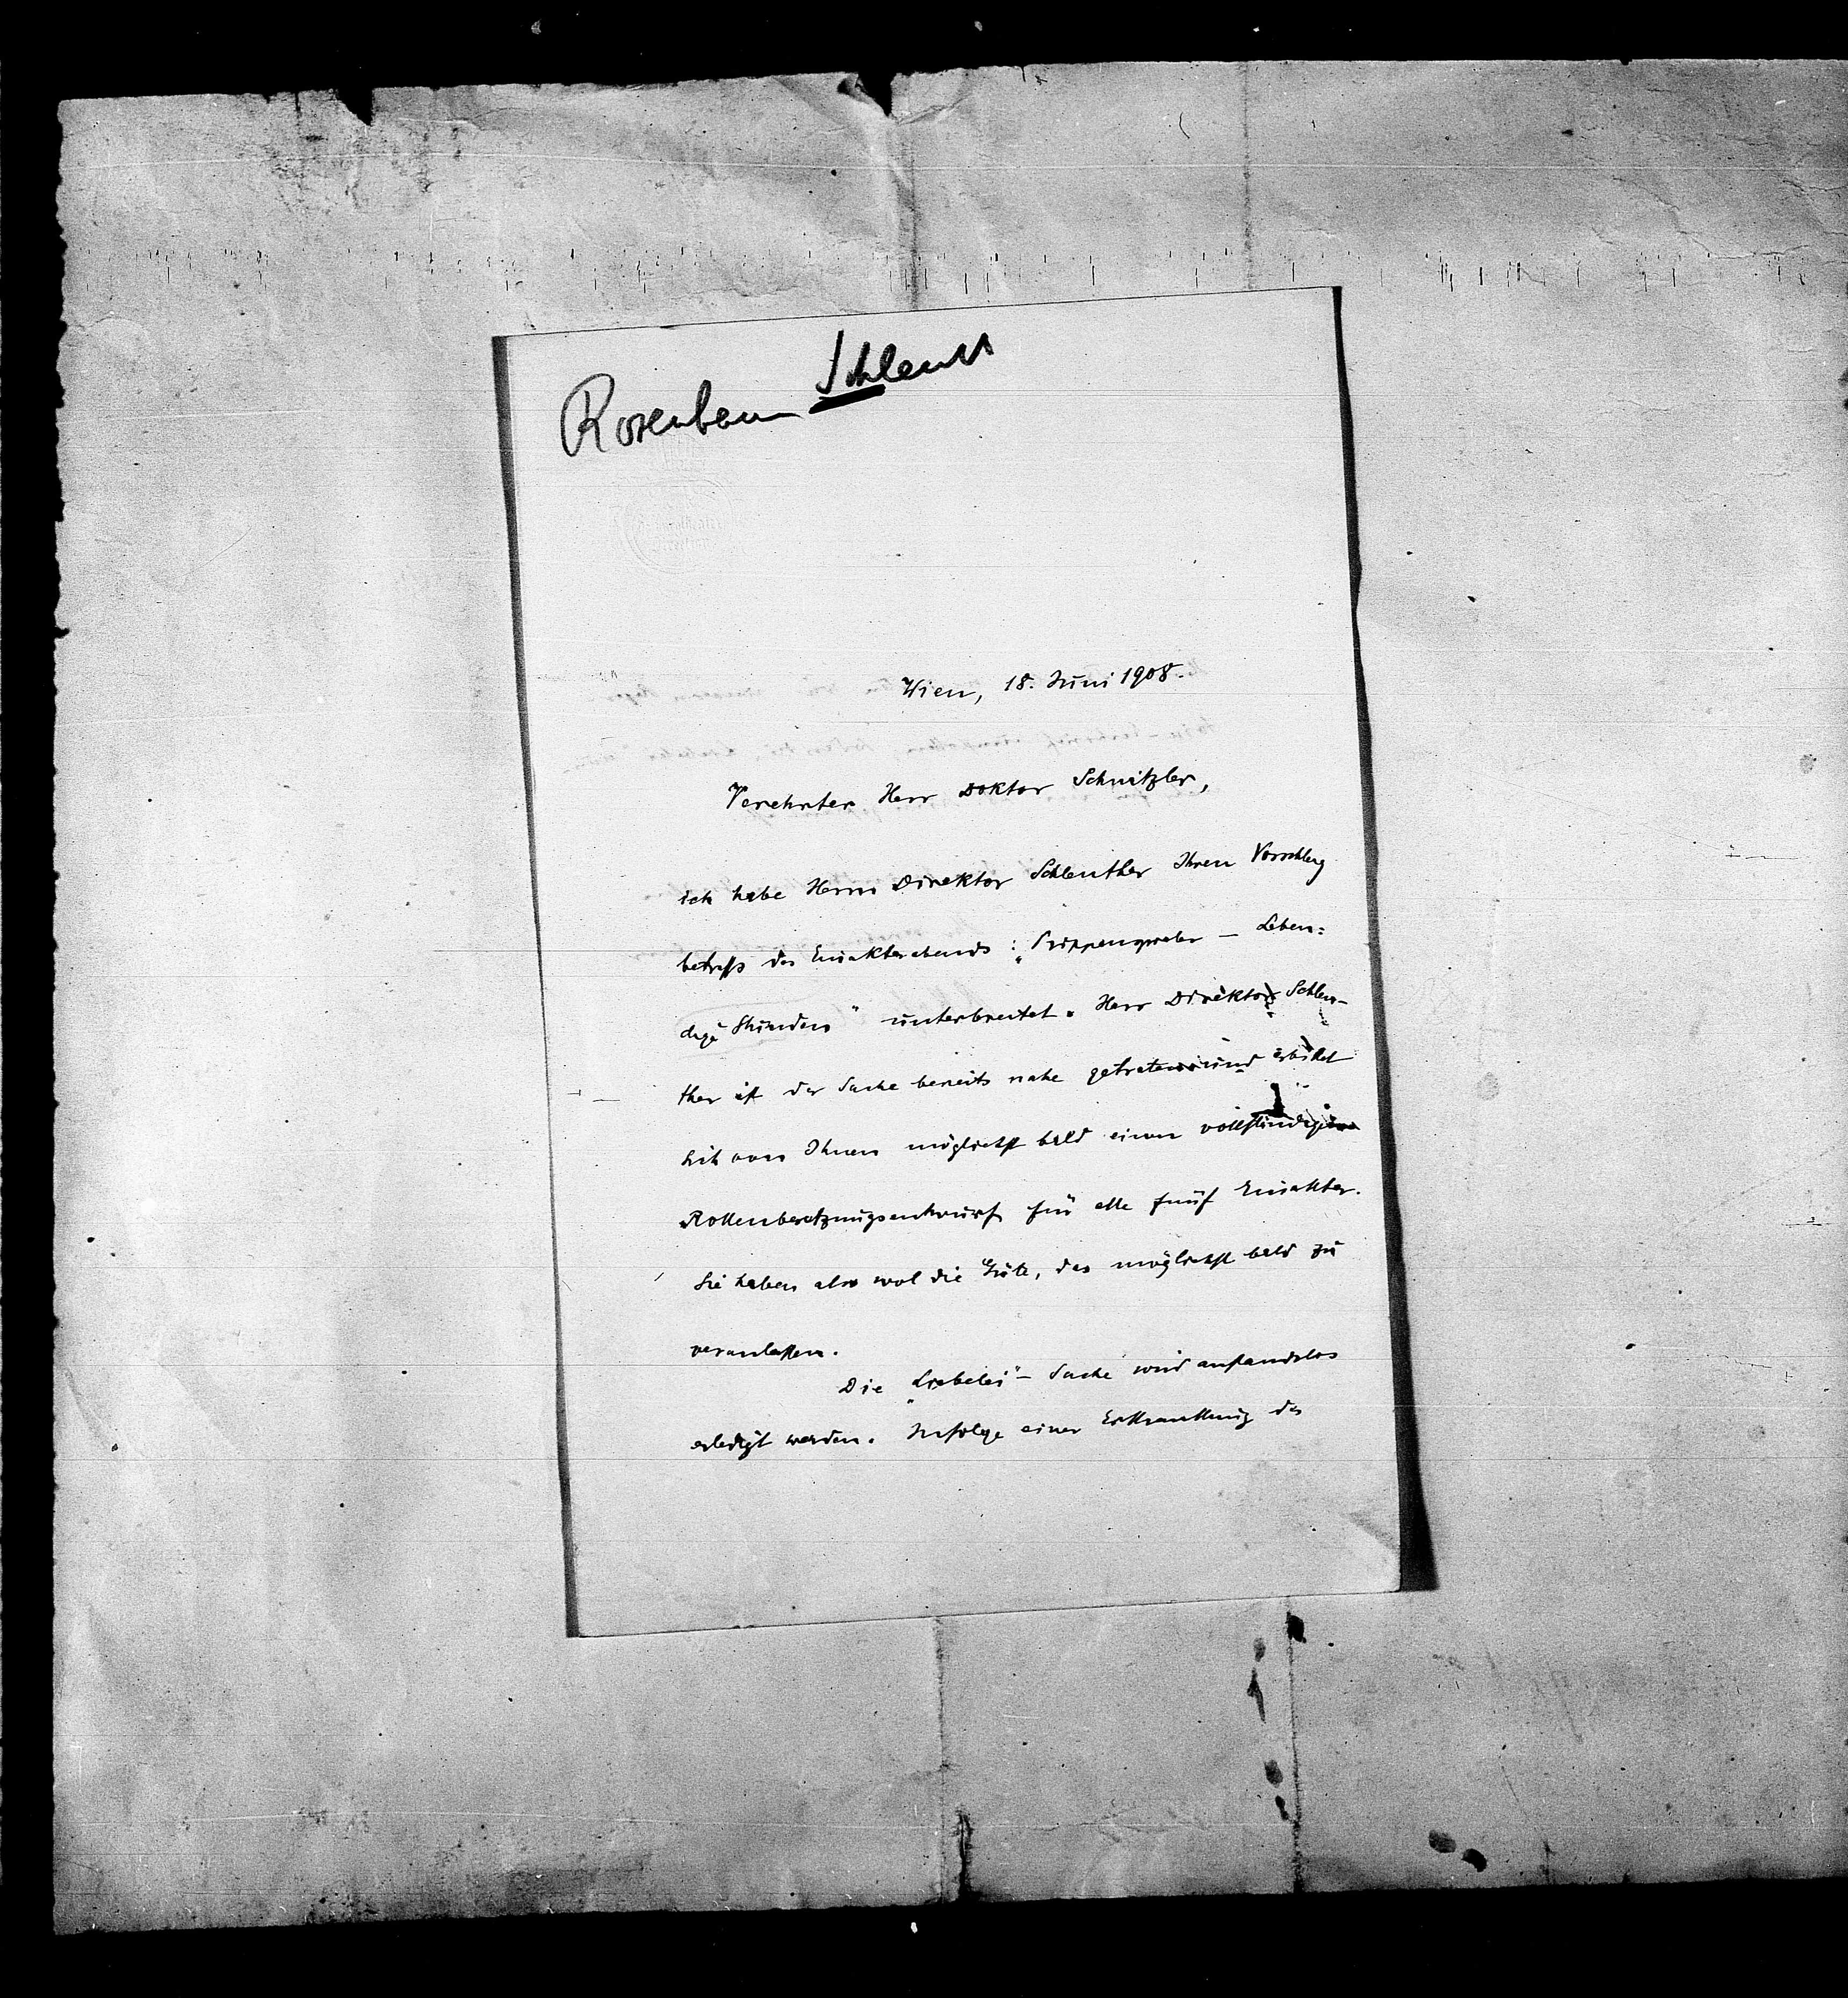 Rosenbaum Schlenth
Wien, 18. Juni 1908.
Verehrter Herr Doktor Schnitzler,
ich habe Herrn Direktor Schlenther Ihren Vorschlag
betreffs des Einakterabends: „Puppenspieler – Leben=
dige Stunden“ unterbreitet. Herr Direktor Schlen-
ther ist der Sache bereits nahe getreten und erbittet
sich von Ihnen möglichst bald einen vollständigen
Rollenbesetzungsentwurf für alle fünf Einakter.
Sie haben also wol die Güte, das möglichst bald zu
veranlassen.
Die „Liebelei“ – Sache wird anstandslos
erledigt werden. Infolge einer Erkrankung des